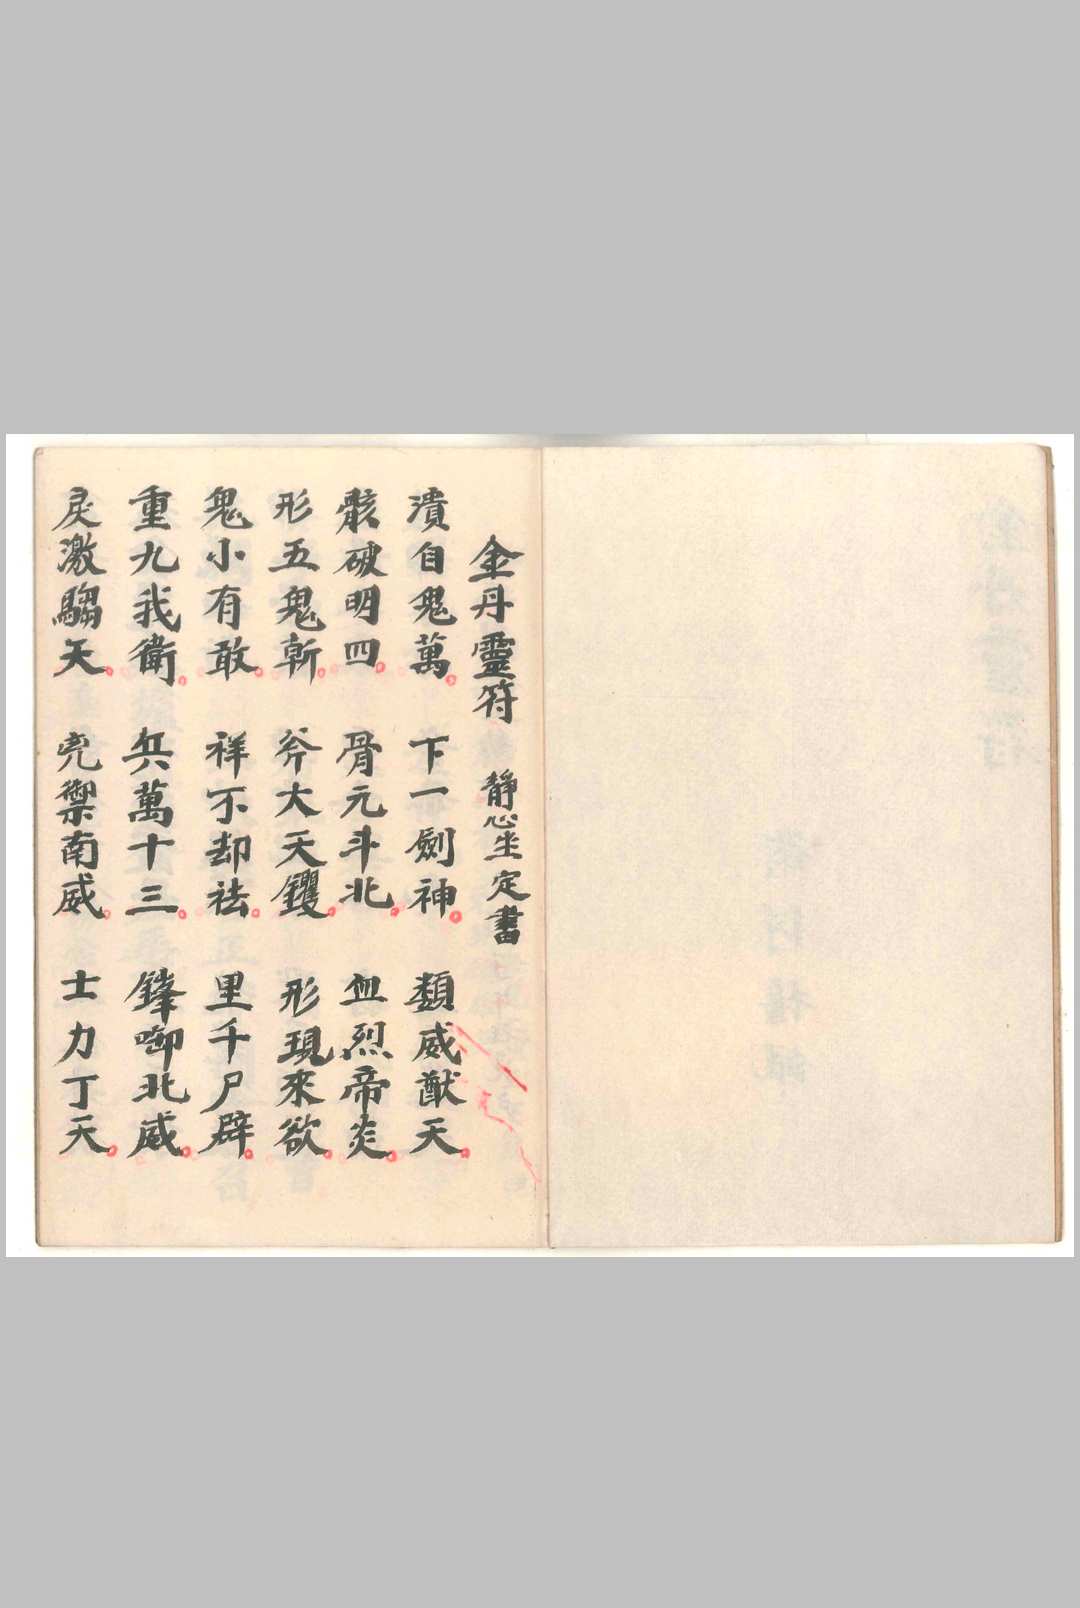 金丹靈符　靜心坐定書
潰自鬼萬。下一劍神。類威猷天。
骸破明四。骨元斗北。血烈帝炎。
形五鬼斬。斧大天钁。形現來欲。
鬼小有敢。祥不却祛。里千尸辟。
重九我衛。兵萬十三。鋒啣北威。
戾激騶天。兇禦南威。士力丁天。